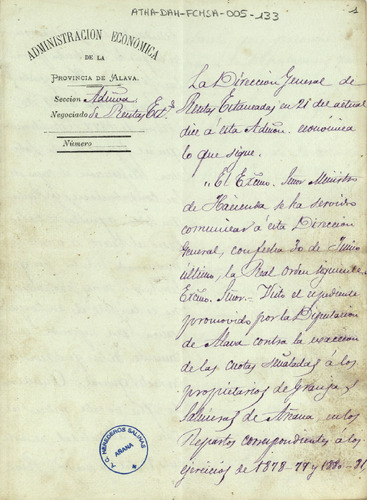 ATHA-DAH-FCHSA-005-133
1
ADMINISTRACIÓN ECONÓMICA
DE LA
PROVINCIA DE ALAVA.
Seccion Admva
Negociado de Rentas Estds
Número
La Direccion General de
Rentas Estancadas en 21 del actual
dice á esta Admon. económica
lo que sigue.
"El Excmo. Señor Ministro
de Hacienda se ha servido
comunicar á esta Direccion
General, con fecha 30 de Junio
último, la Real orden siguiente.
Excmo. Señor.- Visto el expediente
promovido por la Diputacion
de Alava contra la exaccion
de las cuotas señaladas á los
propietarios de Granja y
Salineras de Añana en los
Repartos correspondientes á los
ejercicios de 1878-79 y 1880-81,
T. C. HEREDEROS SALINAS
AÑANA